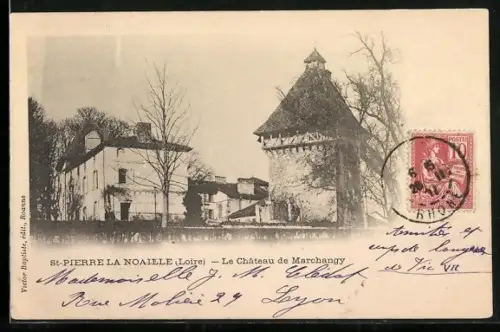 ST-PIERRE LA NOAILLE (Loire) — Le Château de Marchangy
Victor Baptiste, édit., Roanne
10
POSTES
RHONE
Amitiés et
coups de langues
de
Mademoiselle J. M. Clédat
Rue Molière 29 Lyon